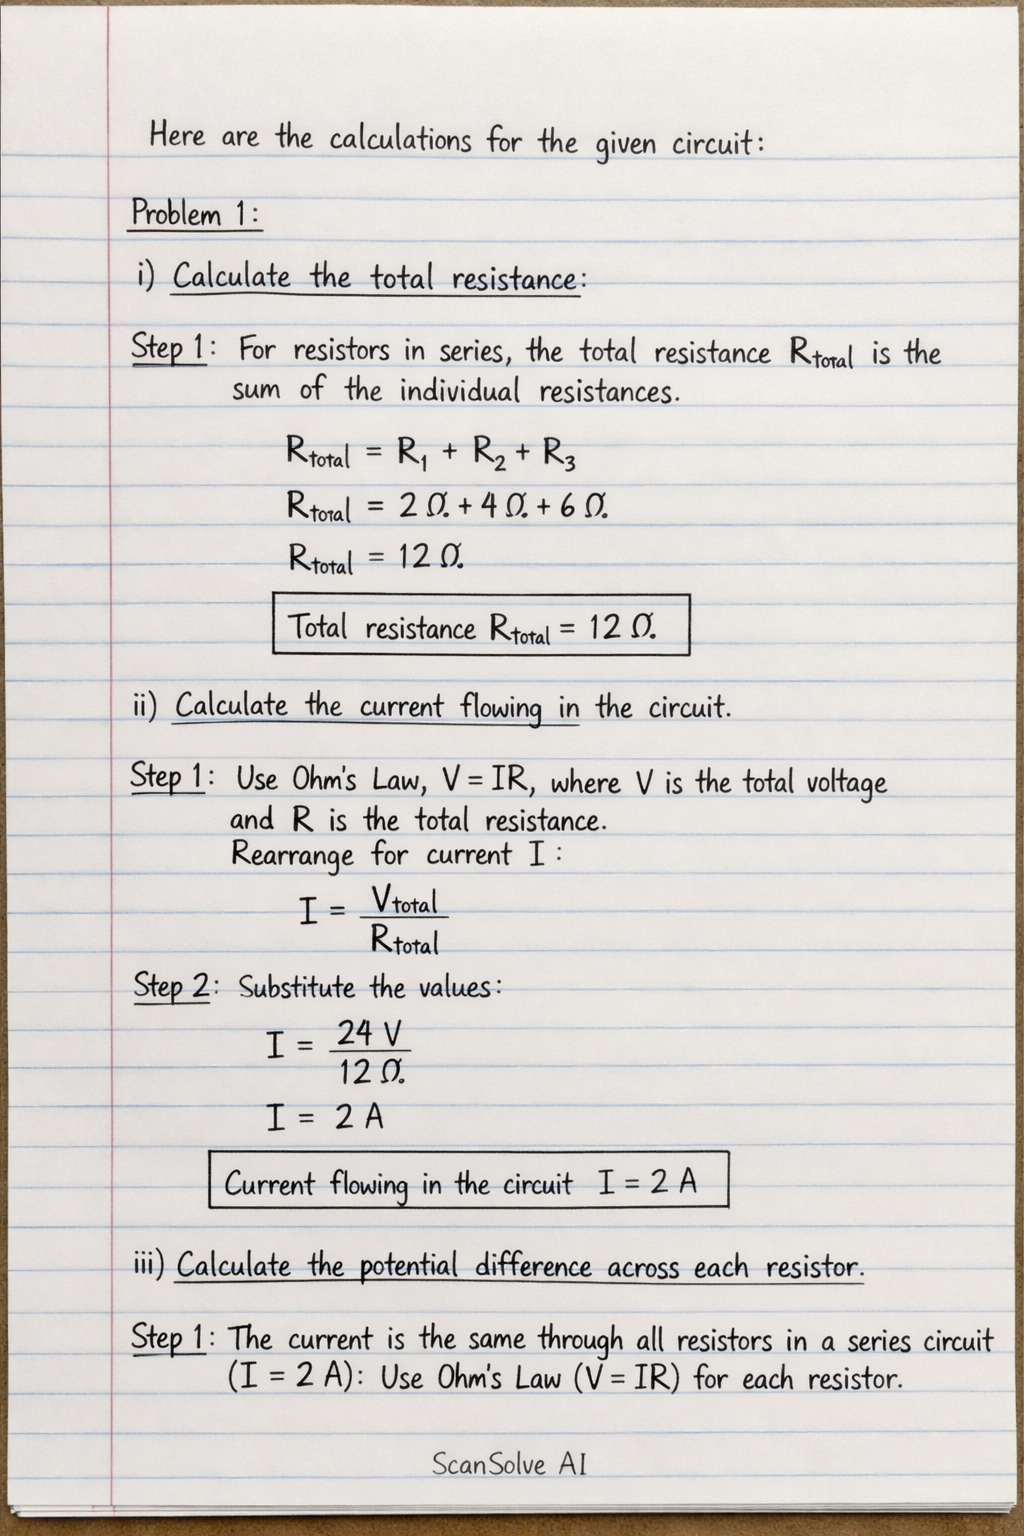 Here are the calculations for the given circuit:
Problem 1:
i) Calculate the total resistance:
Step 1: For resistors in series, the total resistance Rtotal is the
sum of the individual resistances.
Rtotal = R₁ + R₂ + R₃
Rtotal = 2 Ω + 4 Ω + 6 Ω
Rtotal = 12 Ω
Total resistance Rtotal = 12 Ω
ii) Calculate the current flowing in the circuit.
Step 1: Use Ohm's Law, V = IR, where V is the total voltage
and R is the total resistance.
Rearrange for current I :
I = Vtotal / Rtotal
Step 2: Substitute the values:
I = 24 V / 12 Ω
I = 2 A
Current flowing in the circuit I = 2 A
iii) Calculate the potential difference across each resistor.
Step 1: The current is the same through all resistors in a series circuit
(I = 2 A): Use Ohm's Law (V = IR) for each resistor.
ScanSolve AI